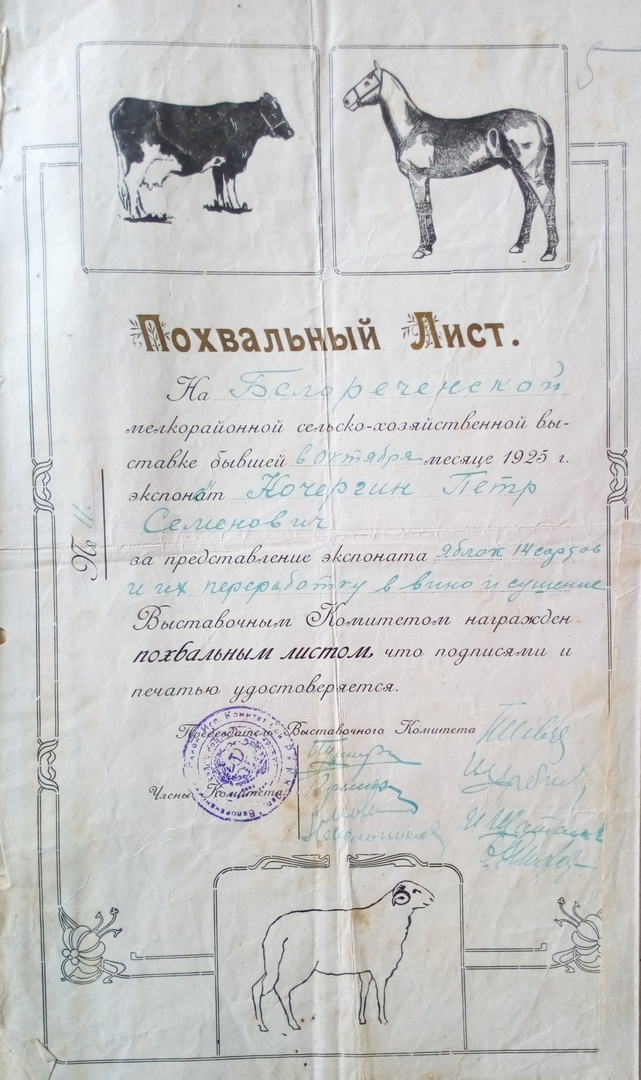 Похвальный Лист.
На Белореченской
мелкорайонной сельско-хозяйственной вы-
ставке бывшей в октября месяце 1925 г.
экспонант Кочергин Петр
Семенович
№ 11.
за представление экспоната яблок 14 сортов
и их переработку в вино и сушение
Выставочным Комитетом награжден
похвальным листом, что подписями и
печатью удостоверяется.
Председатель Выставочного Комитета
Члены Комитета